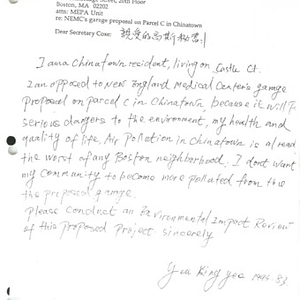 Boston, MA 02202
attn: MEPA Unit
re: NEMC's garage proposal on Parcel C in Chinatown
Dear Secretary Coxe: 親愛的高斯秘書
I am a Chinatown resident, living on Castle Ct.
I an opposed to New England Medical Center's garage
Proposed on parcel c in Chinatown, because it will
serious dangers to the environment, my health and
quality of life. Air Pollution in Chinatown is alread
the worst of any Boston neighborhood. I dont want
my community to become more polluted from the
the proposed garage.
Please conduct an Environmental Impact Review
of this Proposed Project sincerely